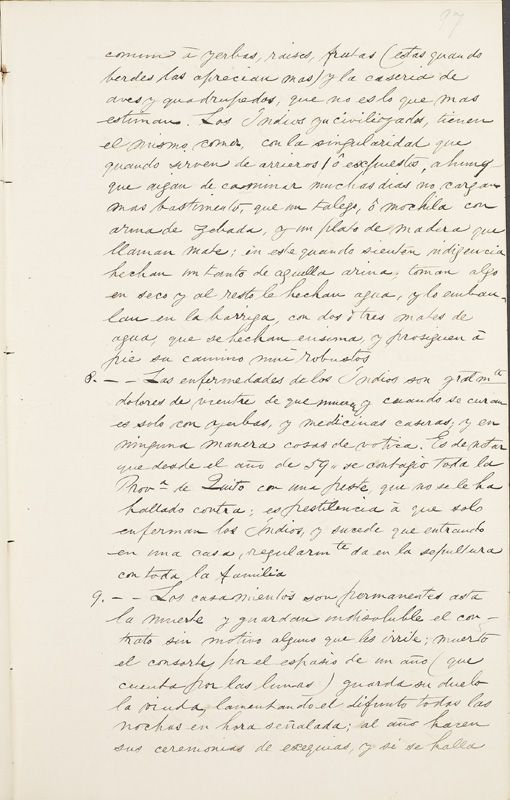 97
comun â yerbas, raises, frutas (estas quando
berdes las aprecian mas) y la caseria de
aves y quadrupedos, que no es lo que mas
estiman. Los Indios ya civilizados, tienen
el mismo comer, con la singularidad que
quando serven de arrieros, ô expuestos, ahunq
que aigan de caminar muchos dias no cargan
mas bastimento, que un talego, ô mochila con
arina de zebada, y un plato de madera que
llaman mate; in este quando sienten indigencia
hechan un tanto de aquella arina, toman algo
en seco y al resto le hechan agua, y lo embau-
lan en la barriga, con dos ô tres mates de
agua, que se hechan ensima, y prosiguen â
pie su camino mui robustos
8. — – Las enfermedades de los Indios son gralmte
dolores de vientre de que mueren y cuando se curan
es solo con yerbas, y medicinas caseras, y en
ninguna manera cosas de votica. Es de notar
que desde el año de 59,, se contagio toda la
Prova de Quito con una peste, que no se le ha
hallado contra; es pestilencia â que solo
enferman los Indios, y sucede que entrando
en una casa, regularmte da en la sepultura
con toda la familia
9. – – Los casamientos son permanentes asta
la muerte y guardan indisoluble el con-
trato sin motivo alguno que les irrite; muerto
el consorte, por el espasio de un año (que
cuenta por las lunas) guarda su duelo
la viuda, lamentando el difunto todas las
noches en hora señalada; al año hacen
sus ceremonias de exequias, y si se halla